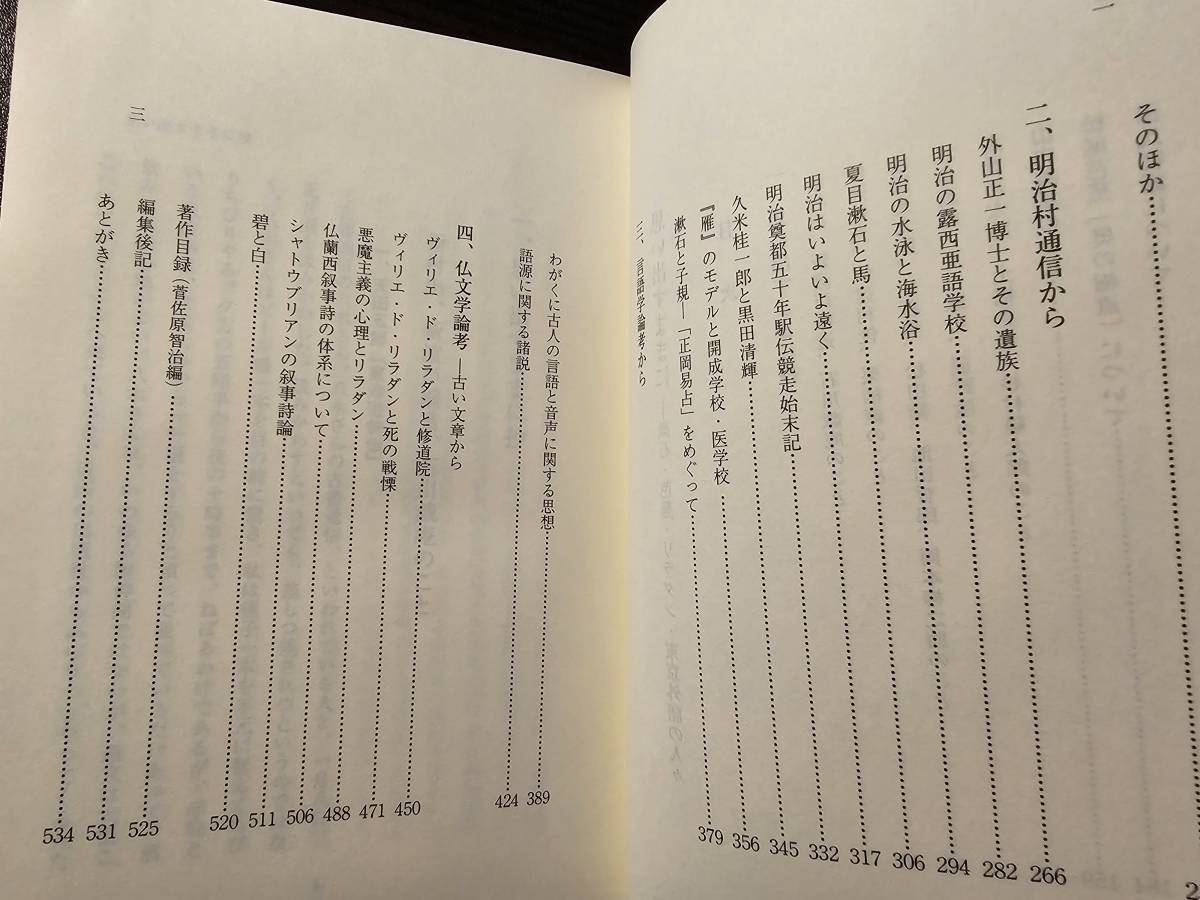 一
そのほか……2
二、明治村通信から
外山正一博士とその遺族……266
明治の露西亜語学校……282
明治の水泳と海水浴……294
夏目漱石と馬……306
明治はいよいよ遠く……317
明治奠都五十年駅伝競走始末記……332
久米桂一郎と黒田清輝……345
『雁』のモデルと開成学校・医学校……356
漱石と子規―「正岡易占」をめぐって……379
三、言語学論考から
わがくに古人の言語と音声に関する思想……389
語源に関する諸説……424
四、仏文学論考 ―古い文章から
ヴィリエ・ド・リラダンと修道院……450
ヴィリエ・ド・リラダンと死の戦慄……471
悪魔主義の心理とリラダン……488
仏蘭西叙事詩の体系について……506
シャトウブリアンの叙事詩論……511
碧と白……520
著作目録（菅佐原智治編）……525
編集後記……531
あとがき……534
三